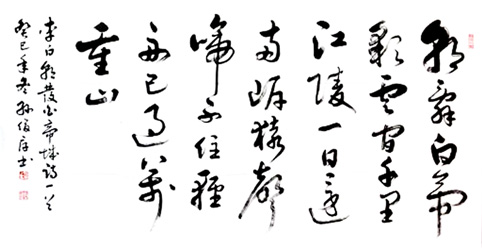 朝辞白帝
彩雲間千里
江陵一日還
两岸猿聲
啼不住輕
舟已過萬
重山
李白朝發白帝城詩一首
癸巳年冬孫俊书